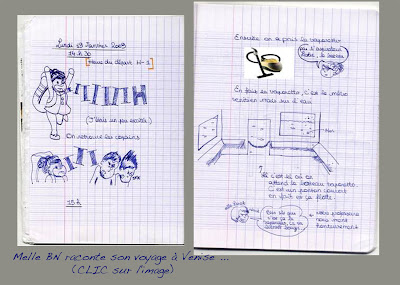 Lundi 19 Janvier 2009
14 h 30
[Heure du départ H-1]
(J'étais un peu excitée)
On retrouve les copains
15 h
Ensuite on a pris le vaporetto
En fait le vaporetto, c'est le métro
vénitien mais sur l'eau
c'est ici où on
attend le bateau vaporetto
c'est un ponton couvert
en fait et ça flotte
Melle BN raconte son voyage à Venise ...
(CLIC sur l'image)